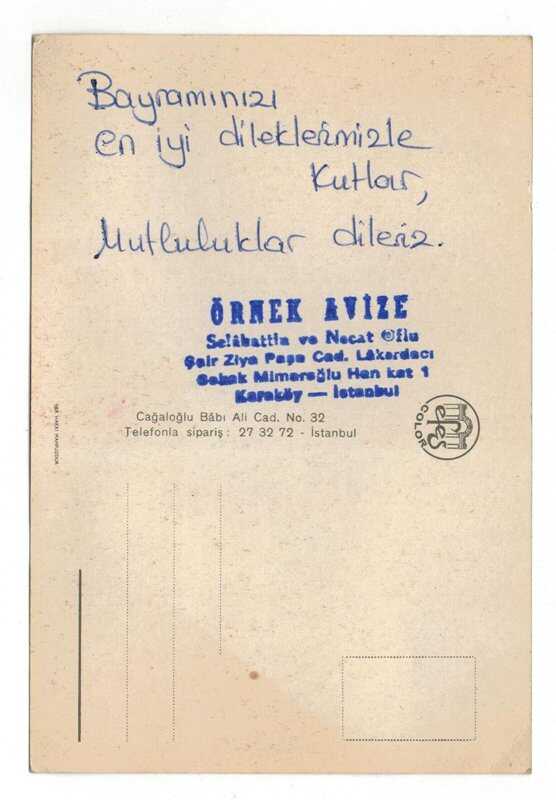 Bayramınızı
en iyi dileklerimizle
Kutlar,
Mutluluklar dileriz.
ÖRNEK AVİZE
Selâhattin ve Necat Oflu
Şair Ziya Paşa Cad. Lâkerdacı
Sokak Mimaroğlu Han kat 1
Karaköy — İstanbul
Cağaloğlu Bâbı Ali Cad. No. 32
Telefonla sipariş : 27 32 72 - İstanbul
efes
COLOR